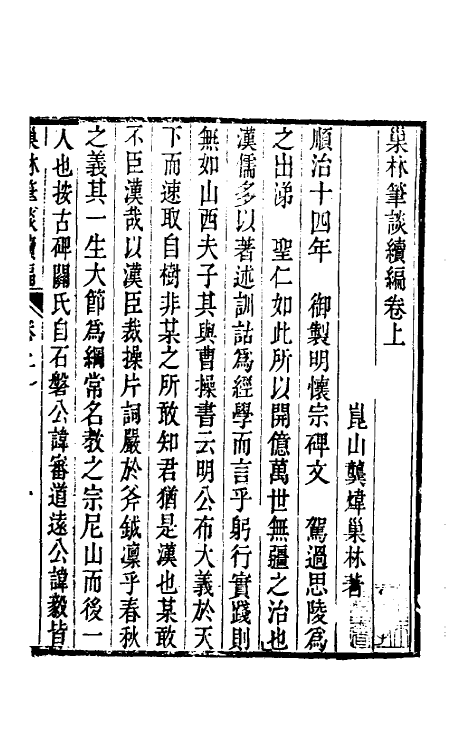 巢林筆談續編卷上
崑山龔煒巢林著
順治十四年　御製明懷宗碑文　駕過思陵爲
之出涕　聖仁如此所以開億萬世無疆之治也
漢儒多以著述訓詁爲經學而言乎躬行實踐則
無如山西夫子其與曹操書云明公布大義於天
下而速取自樹非某之所敢知君猶是漢也某敢
不臣漢哉以漢臣裁操片詞嚴於斧鉞凜乎春秋
之義其一生大節爲綱常名教之宗尼山而後一
人也按古碑關氏自石磐公諱審道遠公諱毅皆
巢林筆談續編